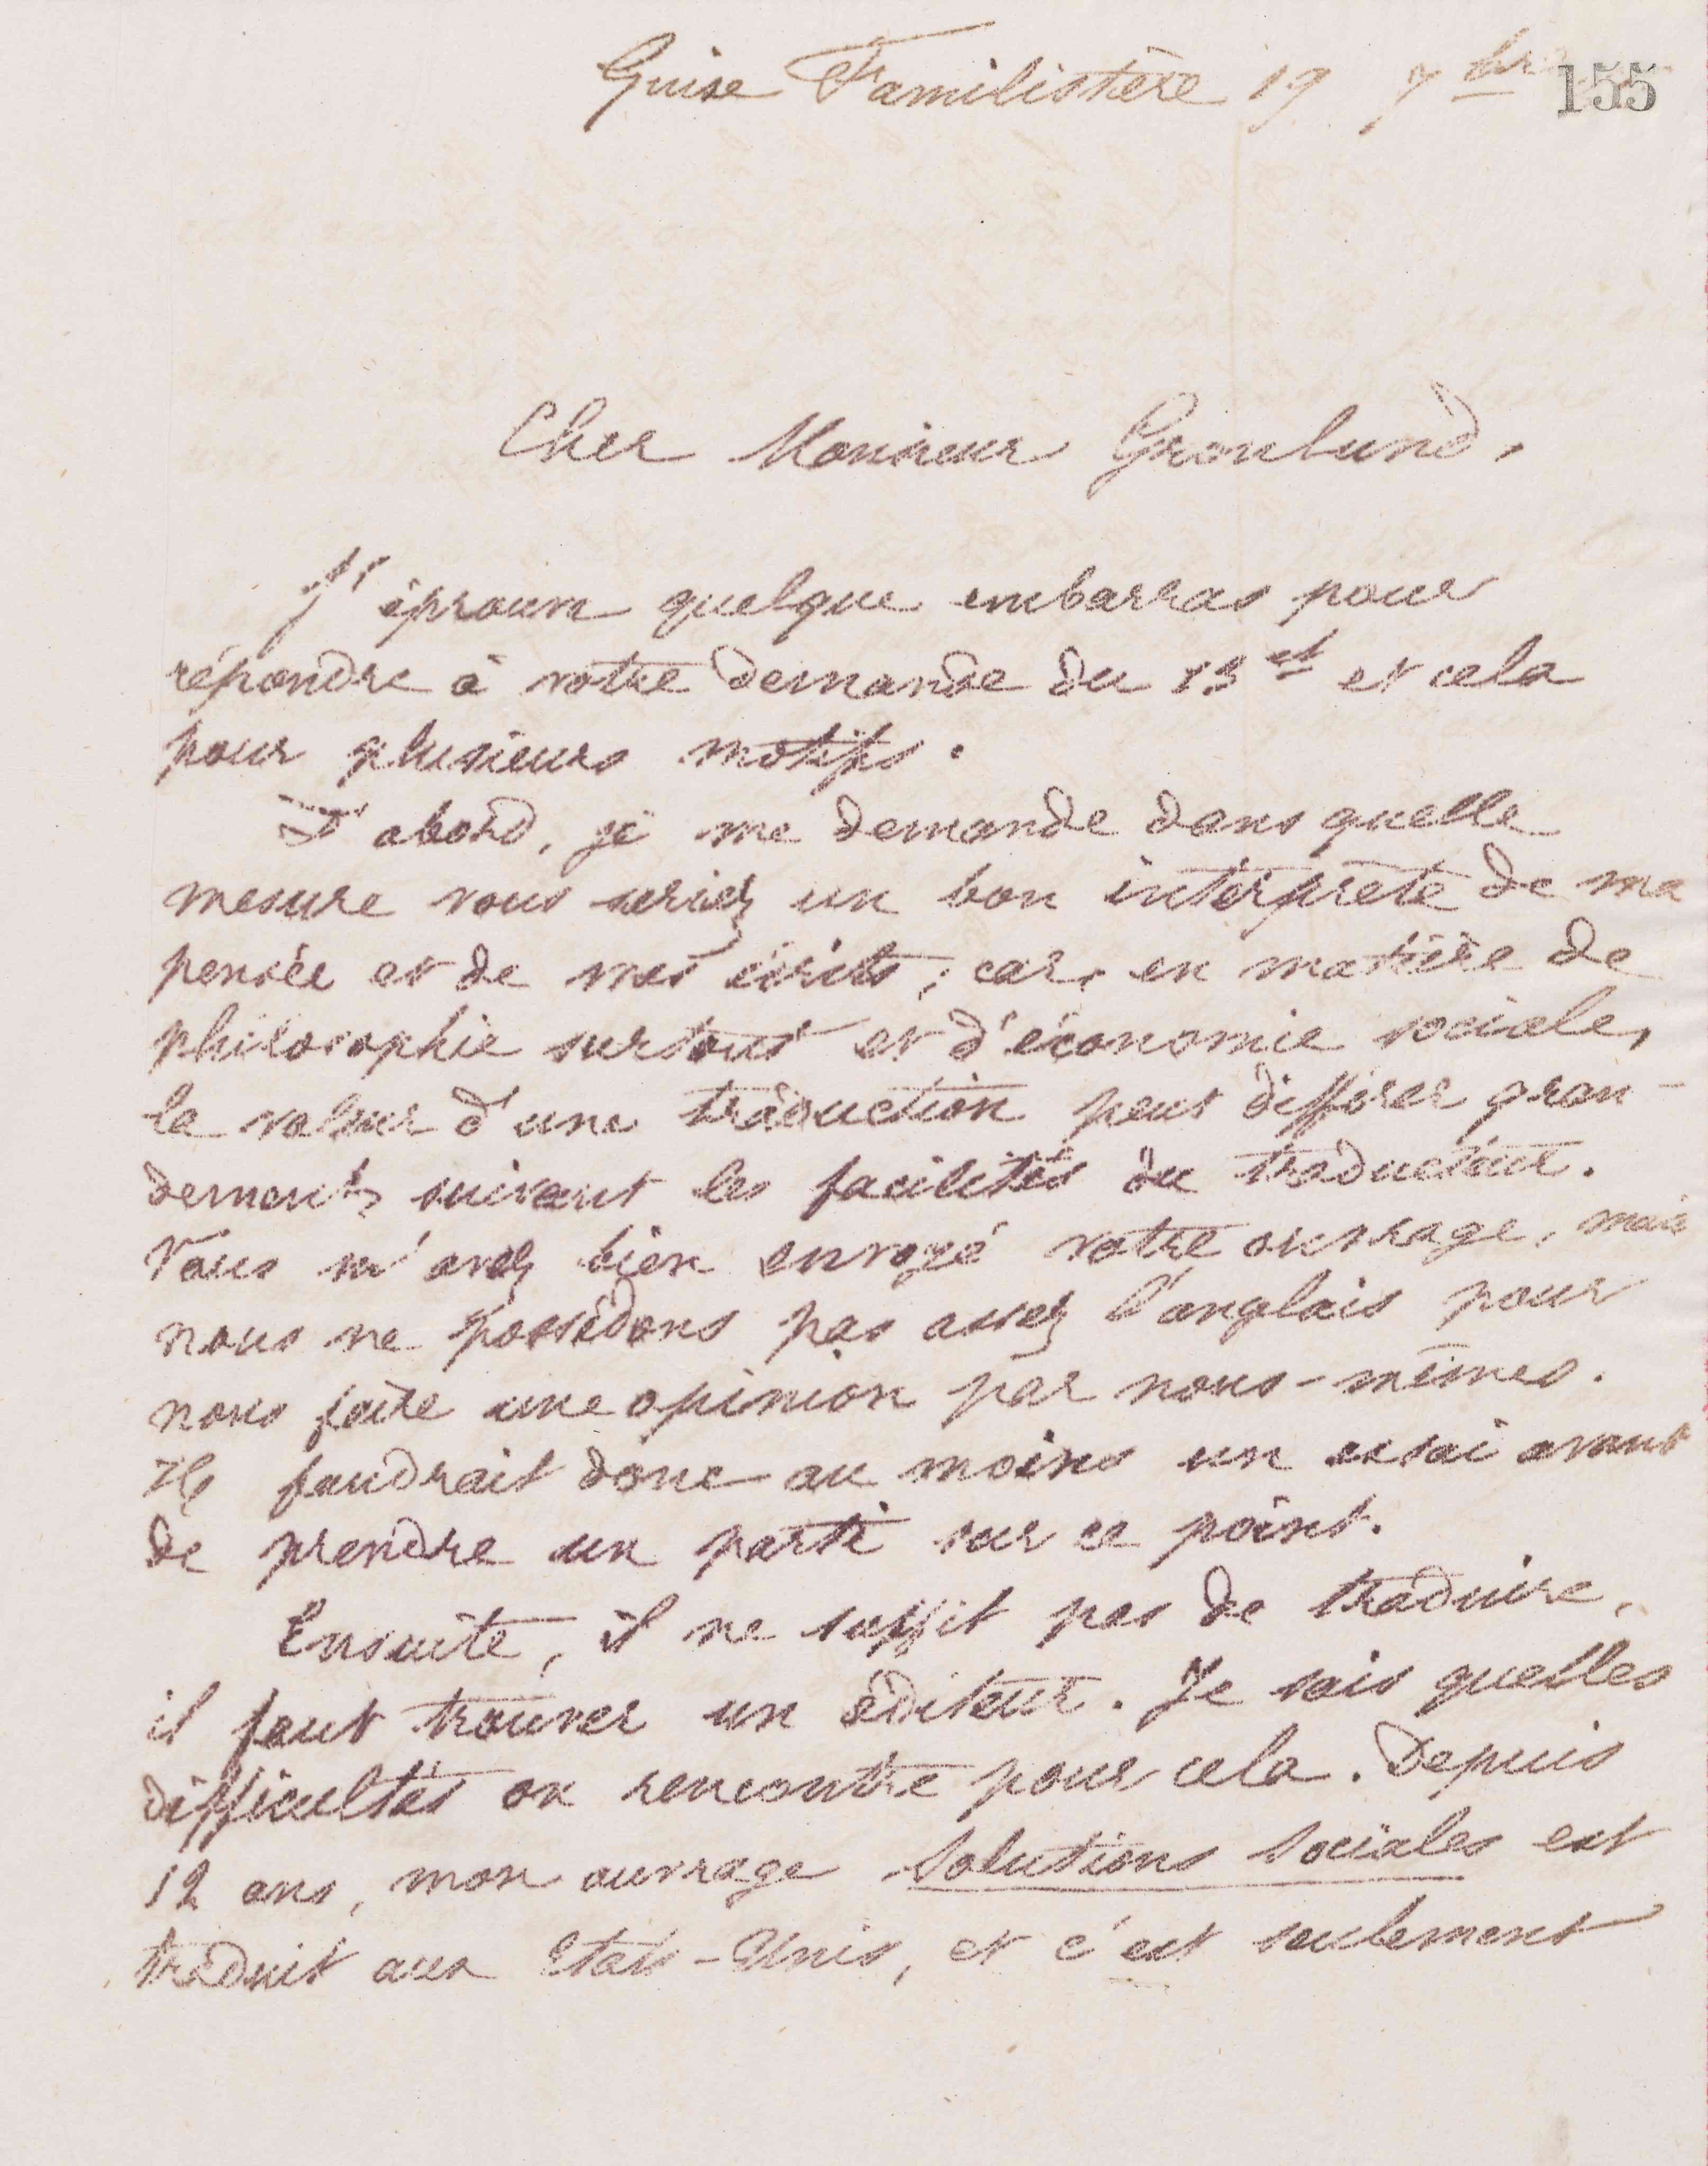 Guise Familistère 19 7bre
155
Cher Monsieur Gronlund,
J'éprouve quelque embarras pour
répondre à votre demande du 13 ct et cela
pour plusieurs motifs.
D'abord, je me demande dans quelle
mesure vous seriez un bon interprète de ma
pensée et de mes écrits, car, en matière de
philosophie surtout et d'économie sociale,
la valeur d'une traduction peut différer gran-
dement suivant les facilités du traducteur.
Vous m'avez bien envoyé votre ouvrage, mais
nous ne possédons pas assez l'anglais pour
nous faire une opinion par nous-mêmes.
Il faudrait donc au moins un essai avant
de prendre un parti sur ce point.
Ensuite, il ne suffit pas de traduire,
il faut trouver un éditeur. Je sais quelles
difficultés on rencontre pour cela. Depuis
12 ans, mon ouvrage Solutions sociales est
traduit aux Etats-Unis, et c'est seulement